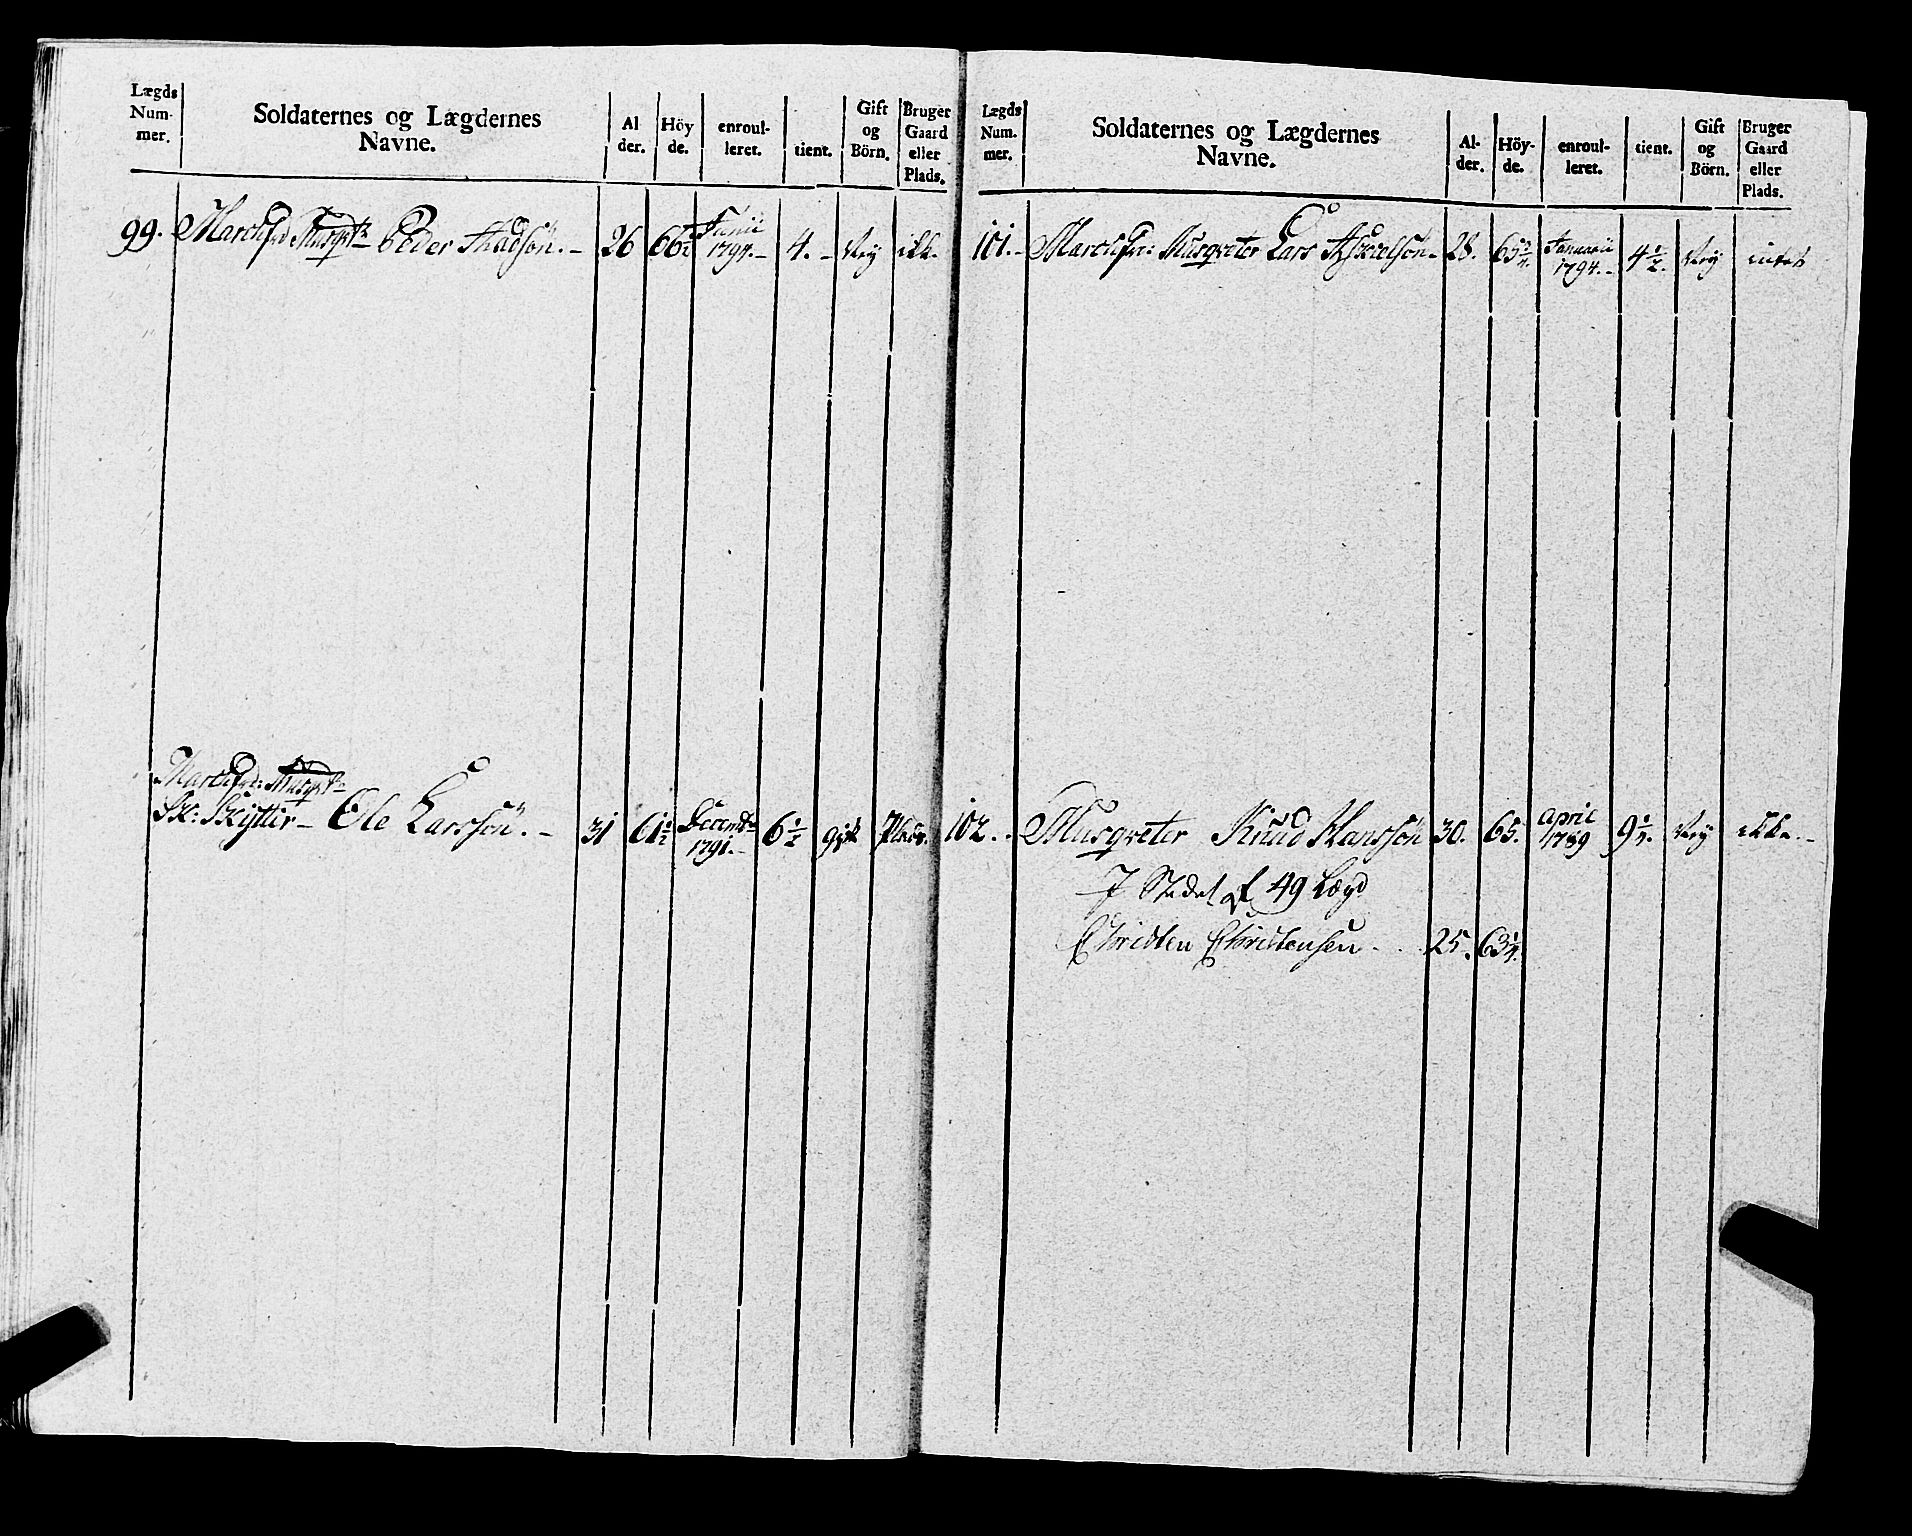 Lægds Num- mer. Soldaternes og Lægdernes Navne. Al der. Höy de. enroul- leret. tient. Gift og Börn. Bruger Gaard eller Plads.
99. Peder Madsön. - 26 66½ Junii 1794. - 4. - Ney ikke.
Sk: Skytter - Ole Larssön. - 31 61½ Decembr 1791. - 6½ gift Plads.
Lægds Num. mer. Soldaternes og Lægdernes Navne. Al- der. Höy- de. enroul- leret. tient. Gift og Börn. Bruger Gaard eller Plads.
101. - Musqveter Lars 28. 65¾ Januarii 1794. - 4½. Ney intet
102. - Musqveter Knud Hanssön 30. 65. april 1789 9¼. Ney ikke. -
I Stedet af 49 Lægd
Christen Christensen. 25. 63¼.